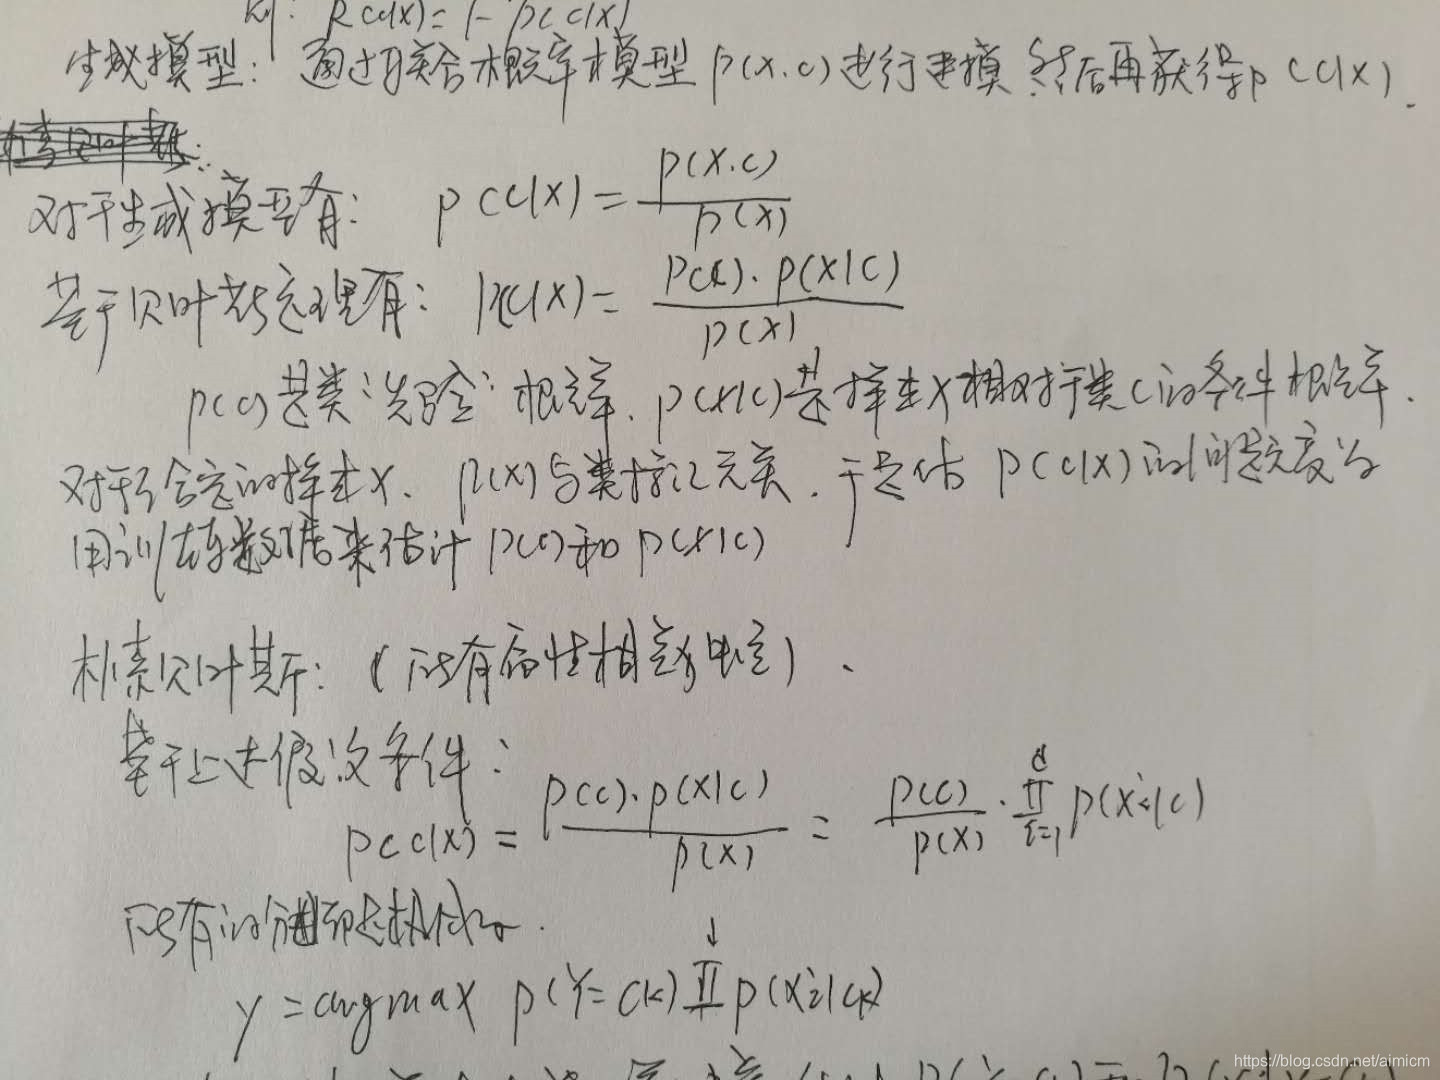 则: R(c|x)=1-p(c|x)
生成模型: 通过联合概率模型p(x.c)进行建模 然后再获得p(c|x).
对于生成模型有: p(c|x) = p(x.c) / p(x)
基于贝叶斯定理有: p(c|x) = p(c).p(x|c) / p(x)
p(c)是类"先验"概率. p(x|c)是样本x相对于类c的条件概率.
对于给定的样本x. p(x)与类标记无关. 于是估 p(c|x)的问题变为
用训练数据来估计 p(c)和 p(x|c)
朴素贝叶斯: (所有属性相互独立).
基于上述假设条件:
p(c|x) = p(c).p(x|c) / p(x) = p(c) / p(x) . ∏ d i=1 p(xi|c)
所有的
y = argmax p(Y=ck) ∏ p(xi|ck)
https://blog.csdn.net/aimicm